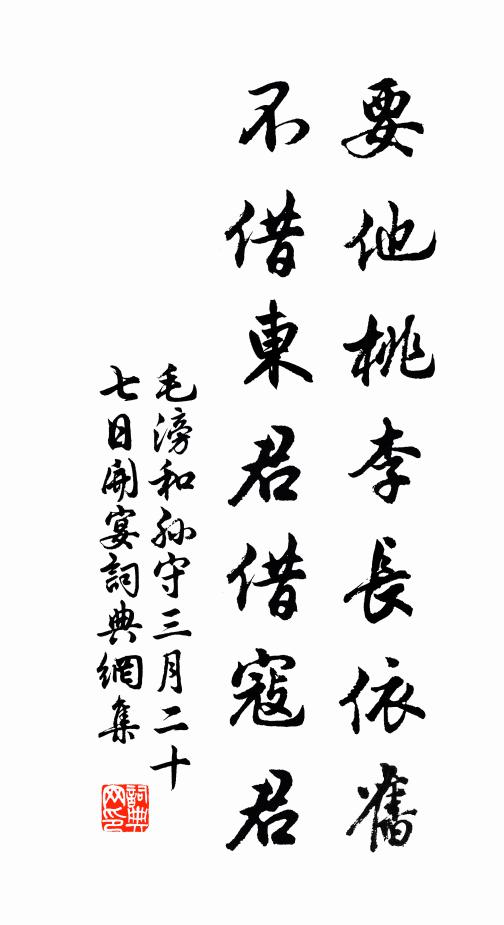 要他桃李長依舊
不借東君借寇君
毛滂和孫守三月二十
七日開宴詞典網集
詞典网印